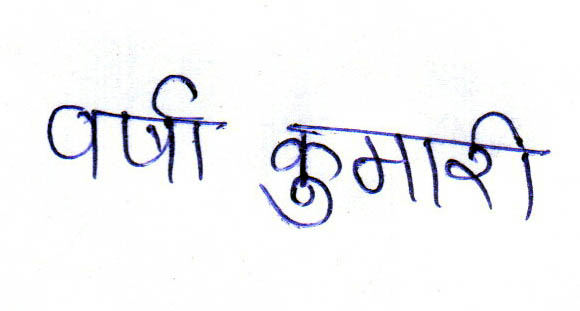 वर्षा कुमारी